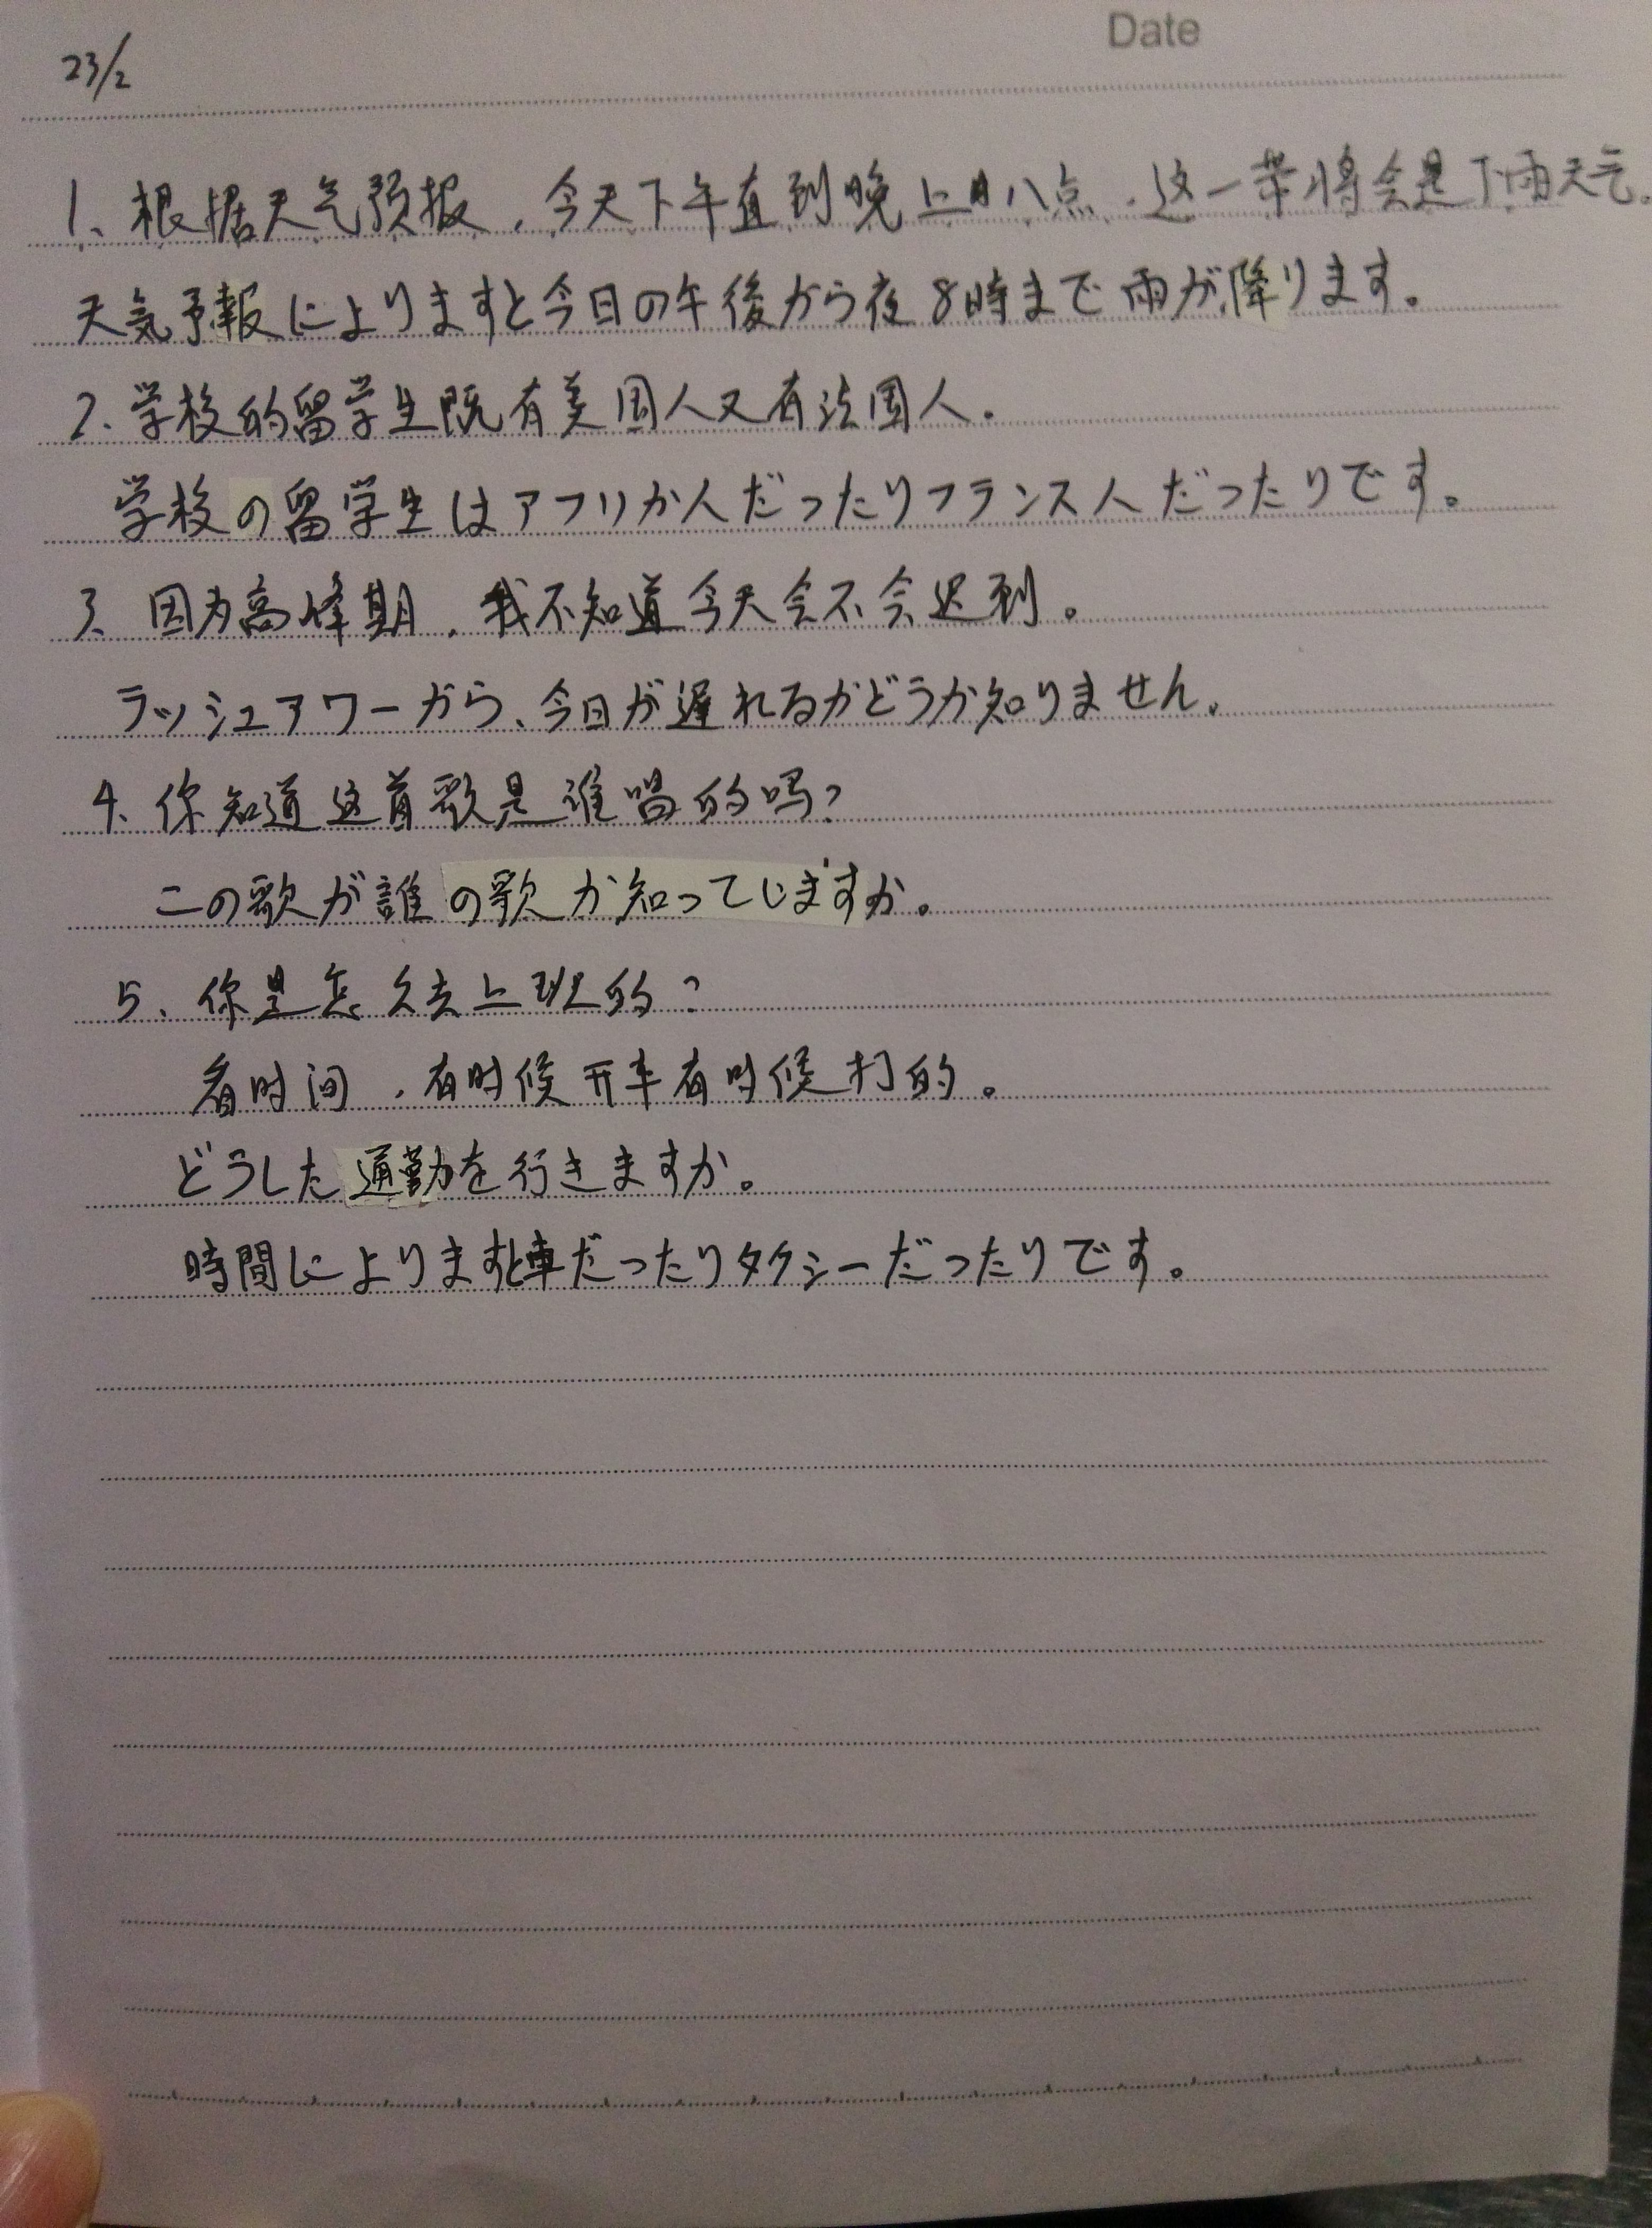 Date
23/2
1、根据天气预报，今天下午直到晚上八点，这一带将会是下雨天气。
天気予報によりますと今日の午後から夜8時まで雨が降ります。
2、学校的留学生既有美国人又有法国人。
学校の留学生はアフリカ人だったりフランス人だったりです。
3、因为高峰期，我不知道今天会不会迟到。
ラッシュアワーから、今日が遅れるかどうか知りません。
4、你知道这首歌是谁唱的吗？
この歌が誰の歌か知ってじますか。
5、你是怎么去上班的？
看时间，有时候开车有时候打的。
どうした通勤を行きますか。
時間によりますと車だったりタクシーだったりです。